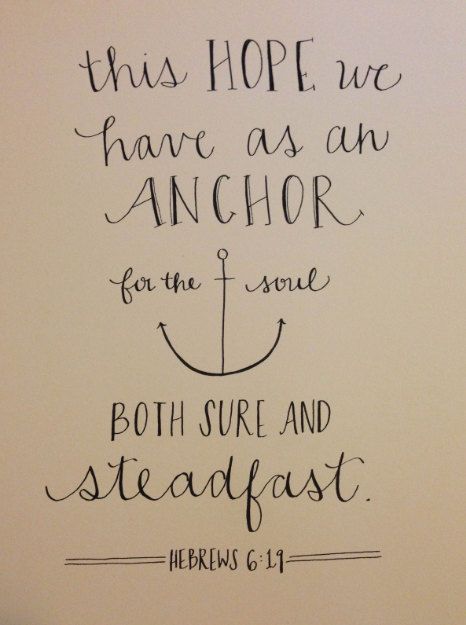 this HOPE we
have as an
ANCHOR
for the soul
BOTH SURE AND
steadfast.
HEBREWS 6:19